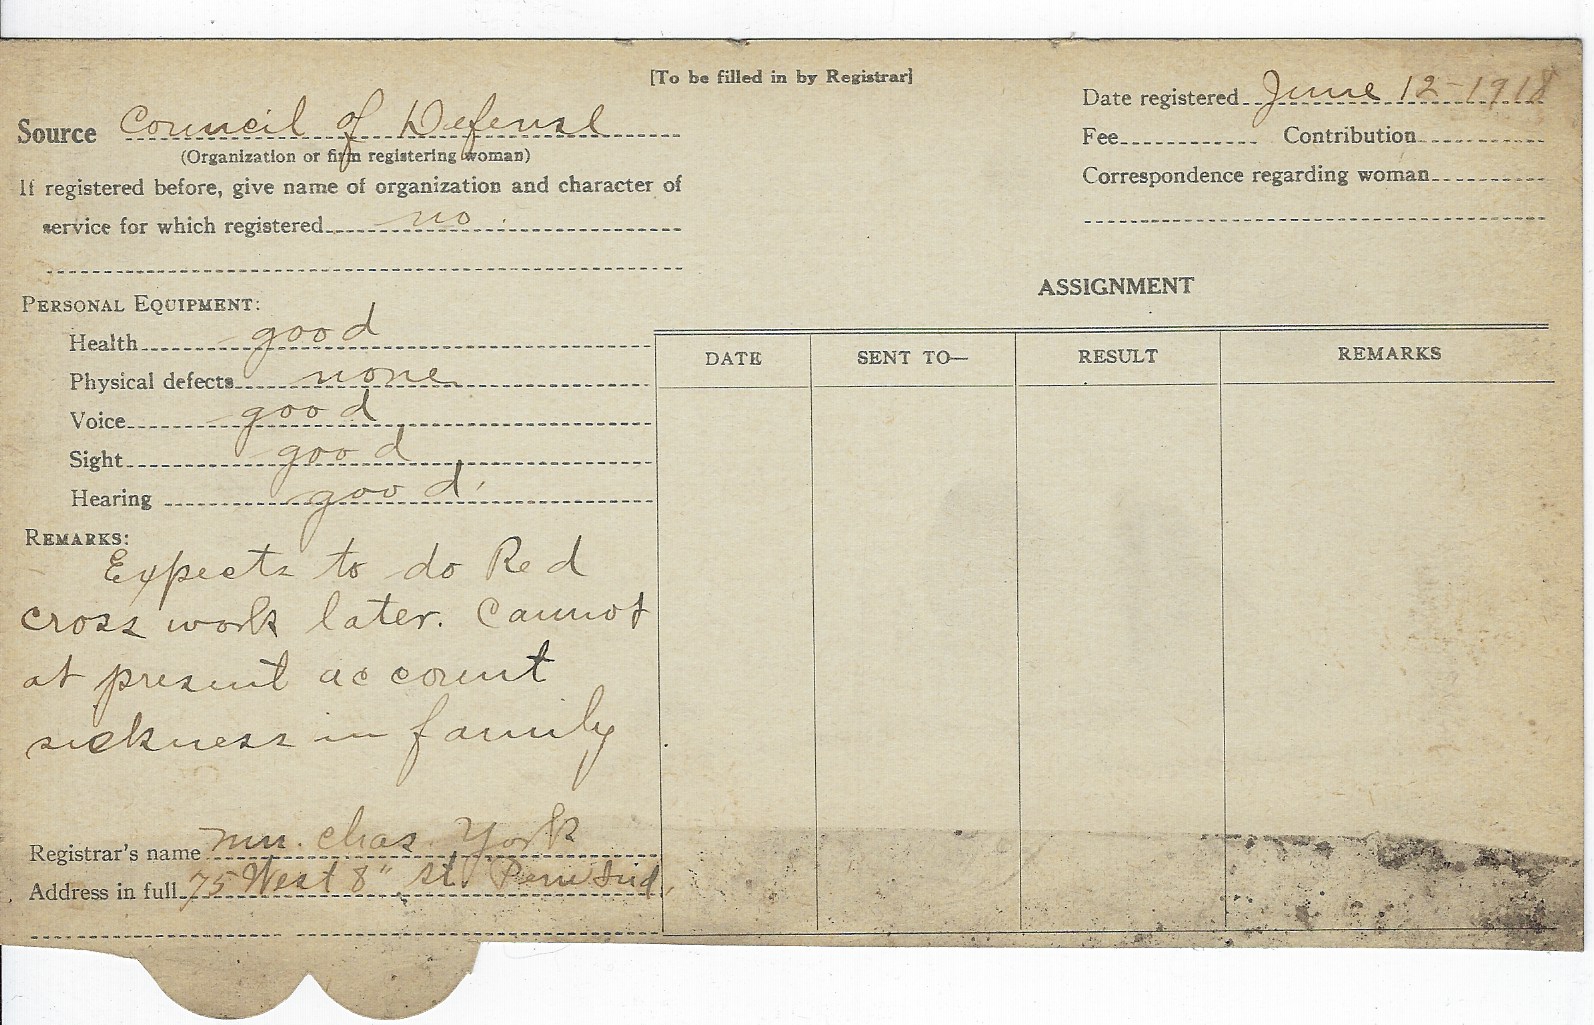 [To be filled in by Registrar]
Date registered June 12-1918
Source Council of Defense
(Organization or firm registering woman)
Fee Contribution
If registered before, give name of organization and character of
service for which registered no.
Correspondence regarding woman
ASSIGNMENT
PERSONAL EQUIPMENT:
Health good
Physical defects none
Voice good
Sight good
Hearing good.
DATE SENT TO— RESULT REMARKS
REMARKS:
Expects to do Red
cross work later. Cannot
at present account
sickness in family
Registrar's name Mrs. Chas. York
Address in full 75 West 8" St. Peru Ind.